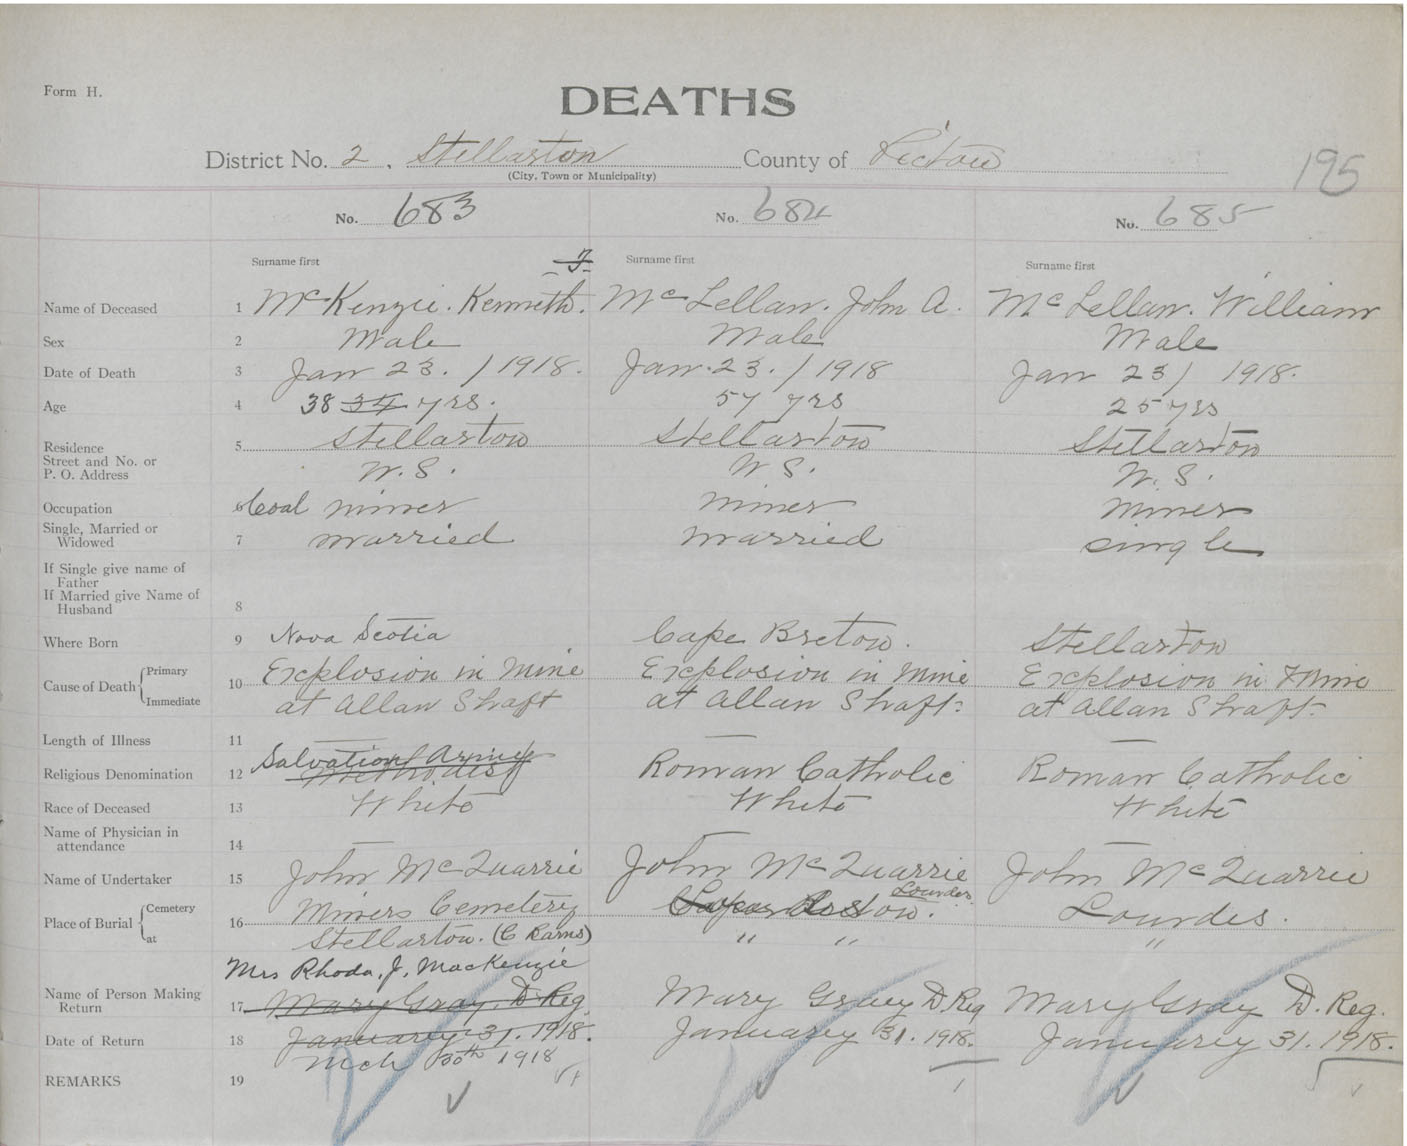 Form H.
DEATHS
District No. 2, Stellarton County of Pictou
(City, Town or Municipality)
195
No. 683 No. 684 No. 685
Surname first J. Surname first Surname first
Name of Deceased 1 McKenzie. Kenneth. McLellan. John A. McLellan. William
Sex 2 Male Male Male
Date of Death 3 Jan 23. / 1918. Jan. 23. / 1918 Jan 23 / 1918.
Age 4 38 34 yrs. 57 yrs 25 yrs
Residence 5 Stellarton Stellarton Stellarton
Street and No. or
P. O. Address N. S. N. S. N. S.
Occupation 6 Coal miner miner miner
Single, Married or
Widowed 7 married married single
If Single give name of
Father
If Married give Name of
Husband 8
Where Born 9 Nova Scotia Cape Breton. Stellarton
Cause of Death { Primary
10 Explosion in Mine Explosion in Mine Explosion in Mine
Immediate at Allan Shaft at Allan Shaft. at Allan Shaft.
Length of Illness 11 — — —
Salvation Army
Religious Denomination 12 Methodist Roman Catholic Roman Catholic
Race of Deceased 13 White White White
Name of Physician in
attendance 14 — — —
Name of Undertaker 15 John McQuarrie John McQuarrie John McQuarrie
Lourdes.
Place of Burial { Cemetery
16 Miners Cemetery Cape Breton. Lourdes.
at Stellarton. " " "
Mrs Rhoda. J. MacKenzie
Name of Person Making
Return 17 Mary Gray. D. Reg. Mary Gray D Reg Mary Gray D. Reg.
Date of Return 18 January 31. 1918. January 31. 1918. January 31. 1918.
Mch 30th 1918
REMARKS 19